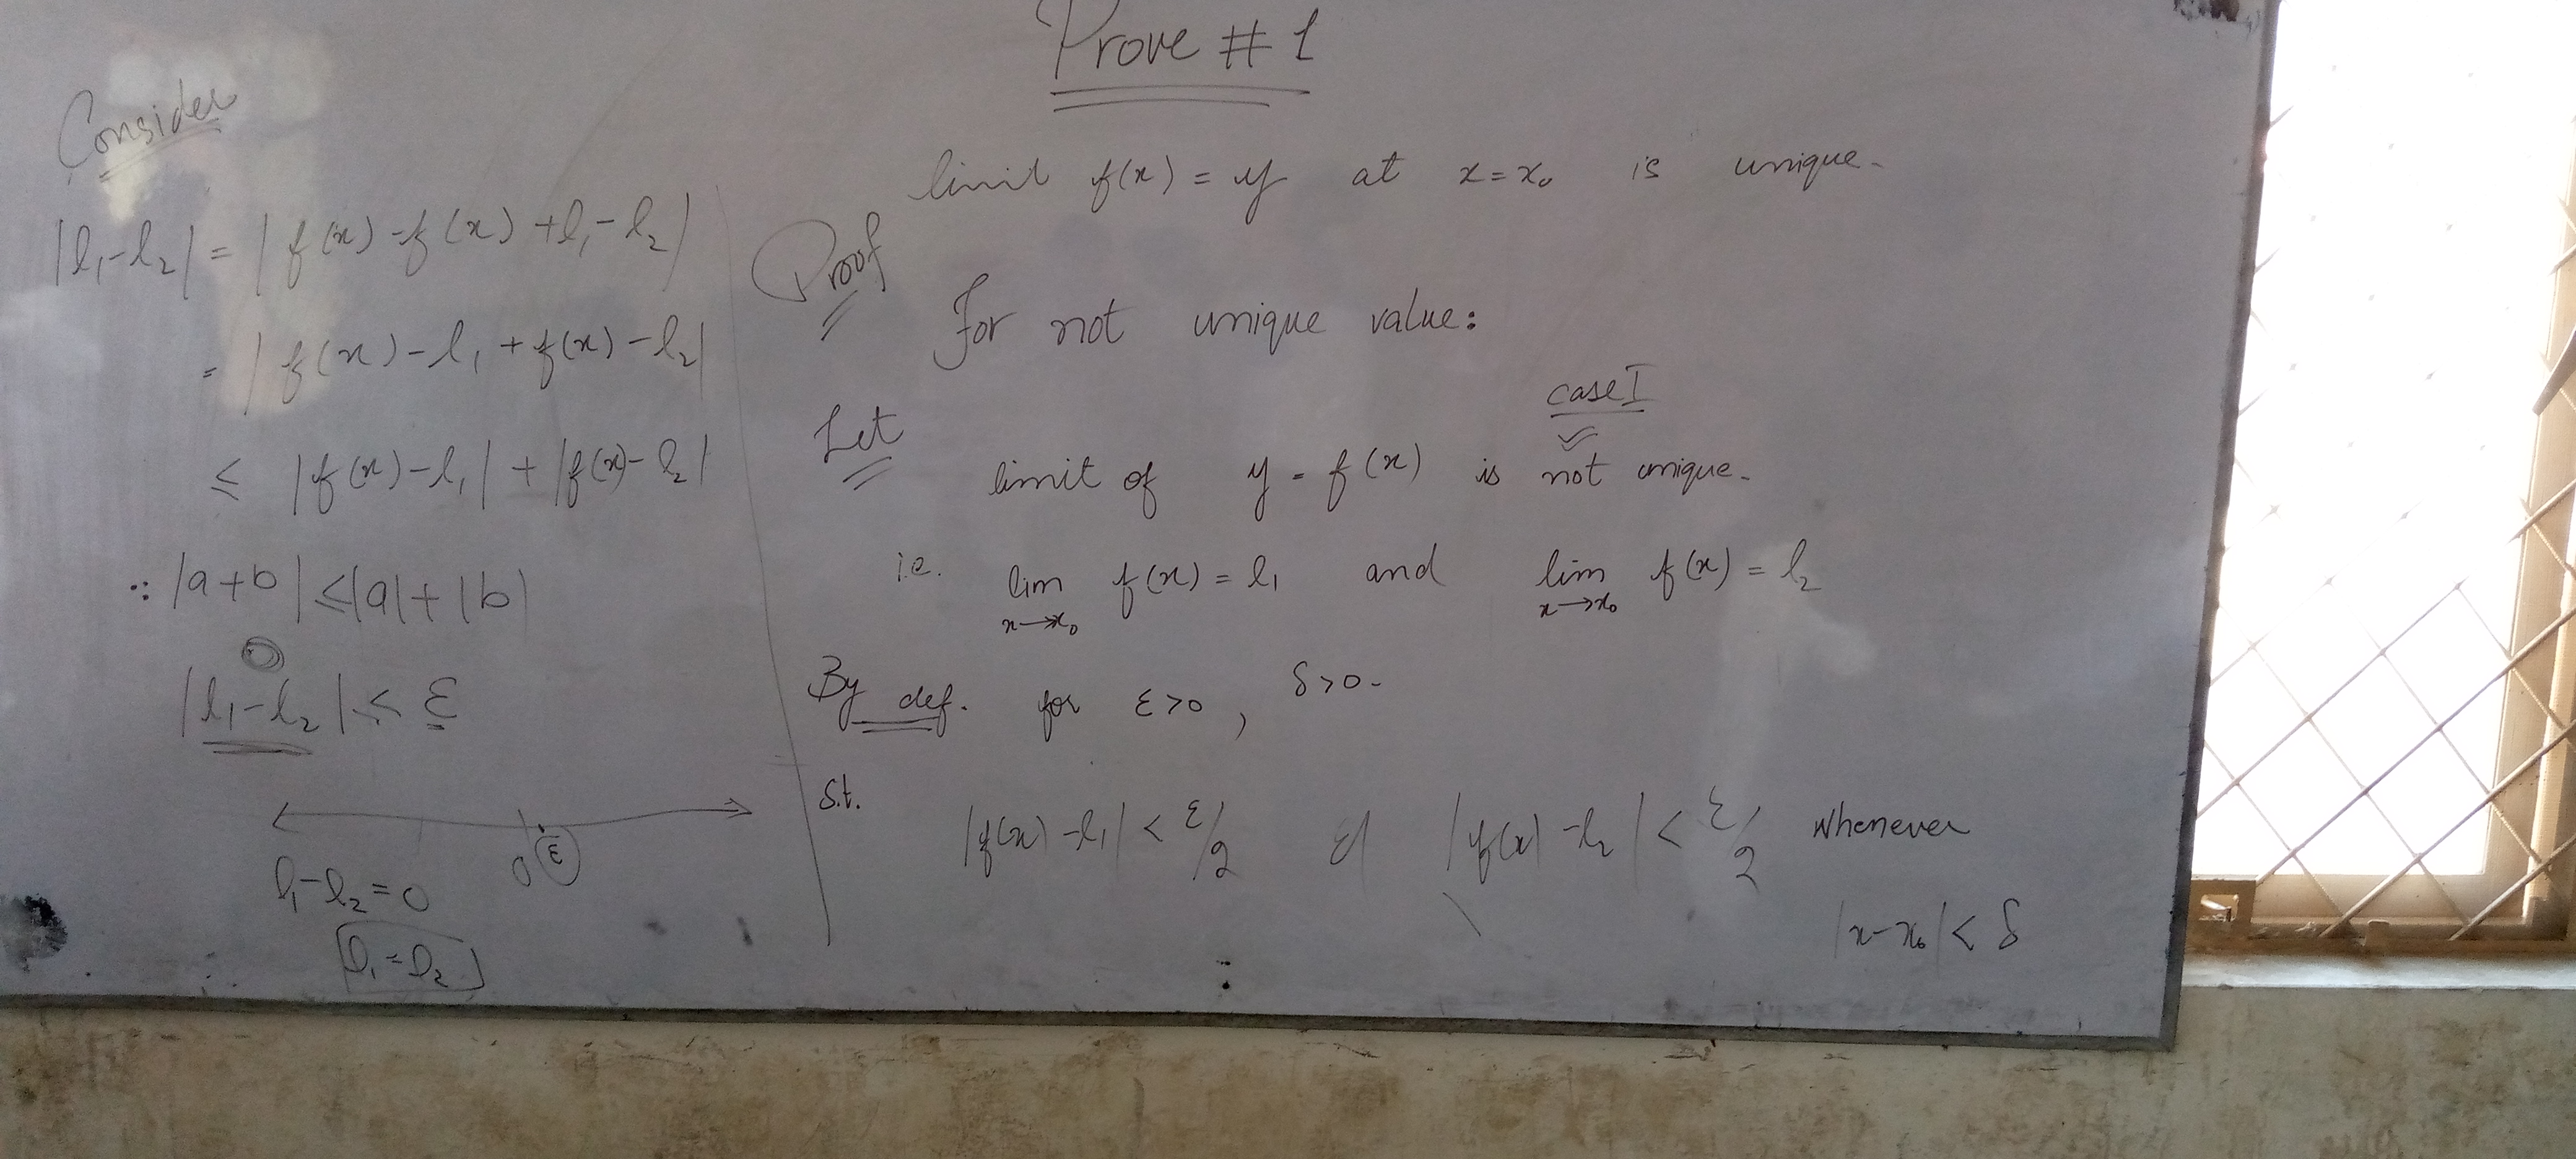 Prove # 1
limit f(x) = y at x = x₀ is unique.
Proof
For not unique value:
case I
Let
limit of y = f(x) is not unique.
i.e. lim f(x) = l₁ and lim f(x) = l₂
x→x₀ x→x₀
By def. for ε>0, δ>0.
S.t. |f(x) - l₁| < ε/2 & |f(x) - l₂| < ε/2 whenever
|x-x₀| < δ
Consider
|l₁-l₂| = | f(x) - f(x) + l₁ - l₂ |
= | f(x) - l₁ + f(x) - l₂|
≤ |f(x) - l₁| + |f(x) - l₂|
∵ |a+b| ≤ |a| + |b|
|l₁-l₂| < ε
0 ε
l₁-l₂ = 0
l₁ = l₂